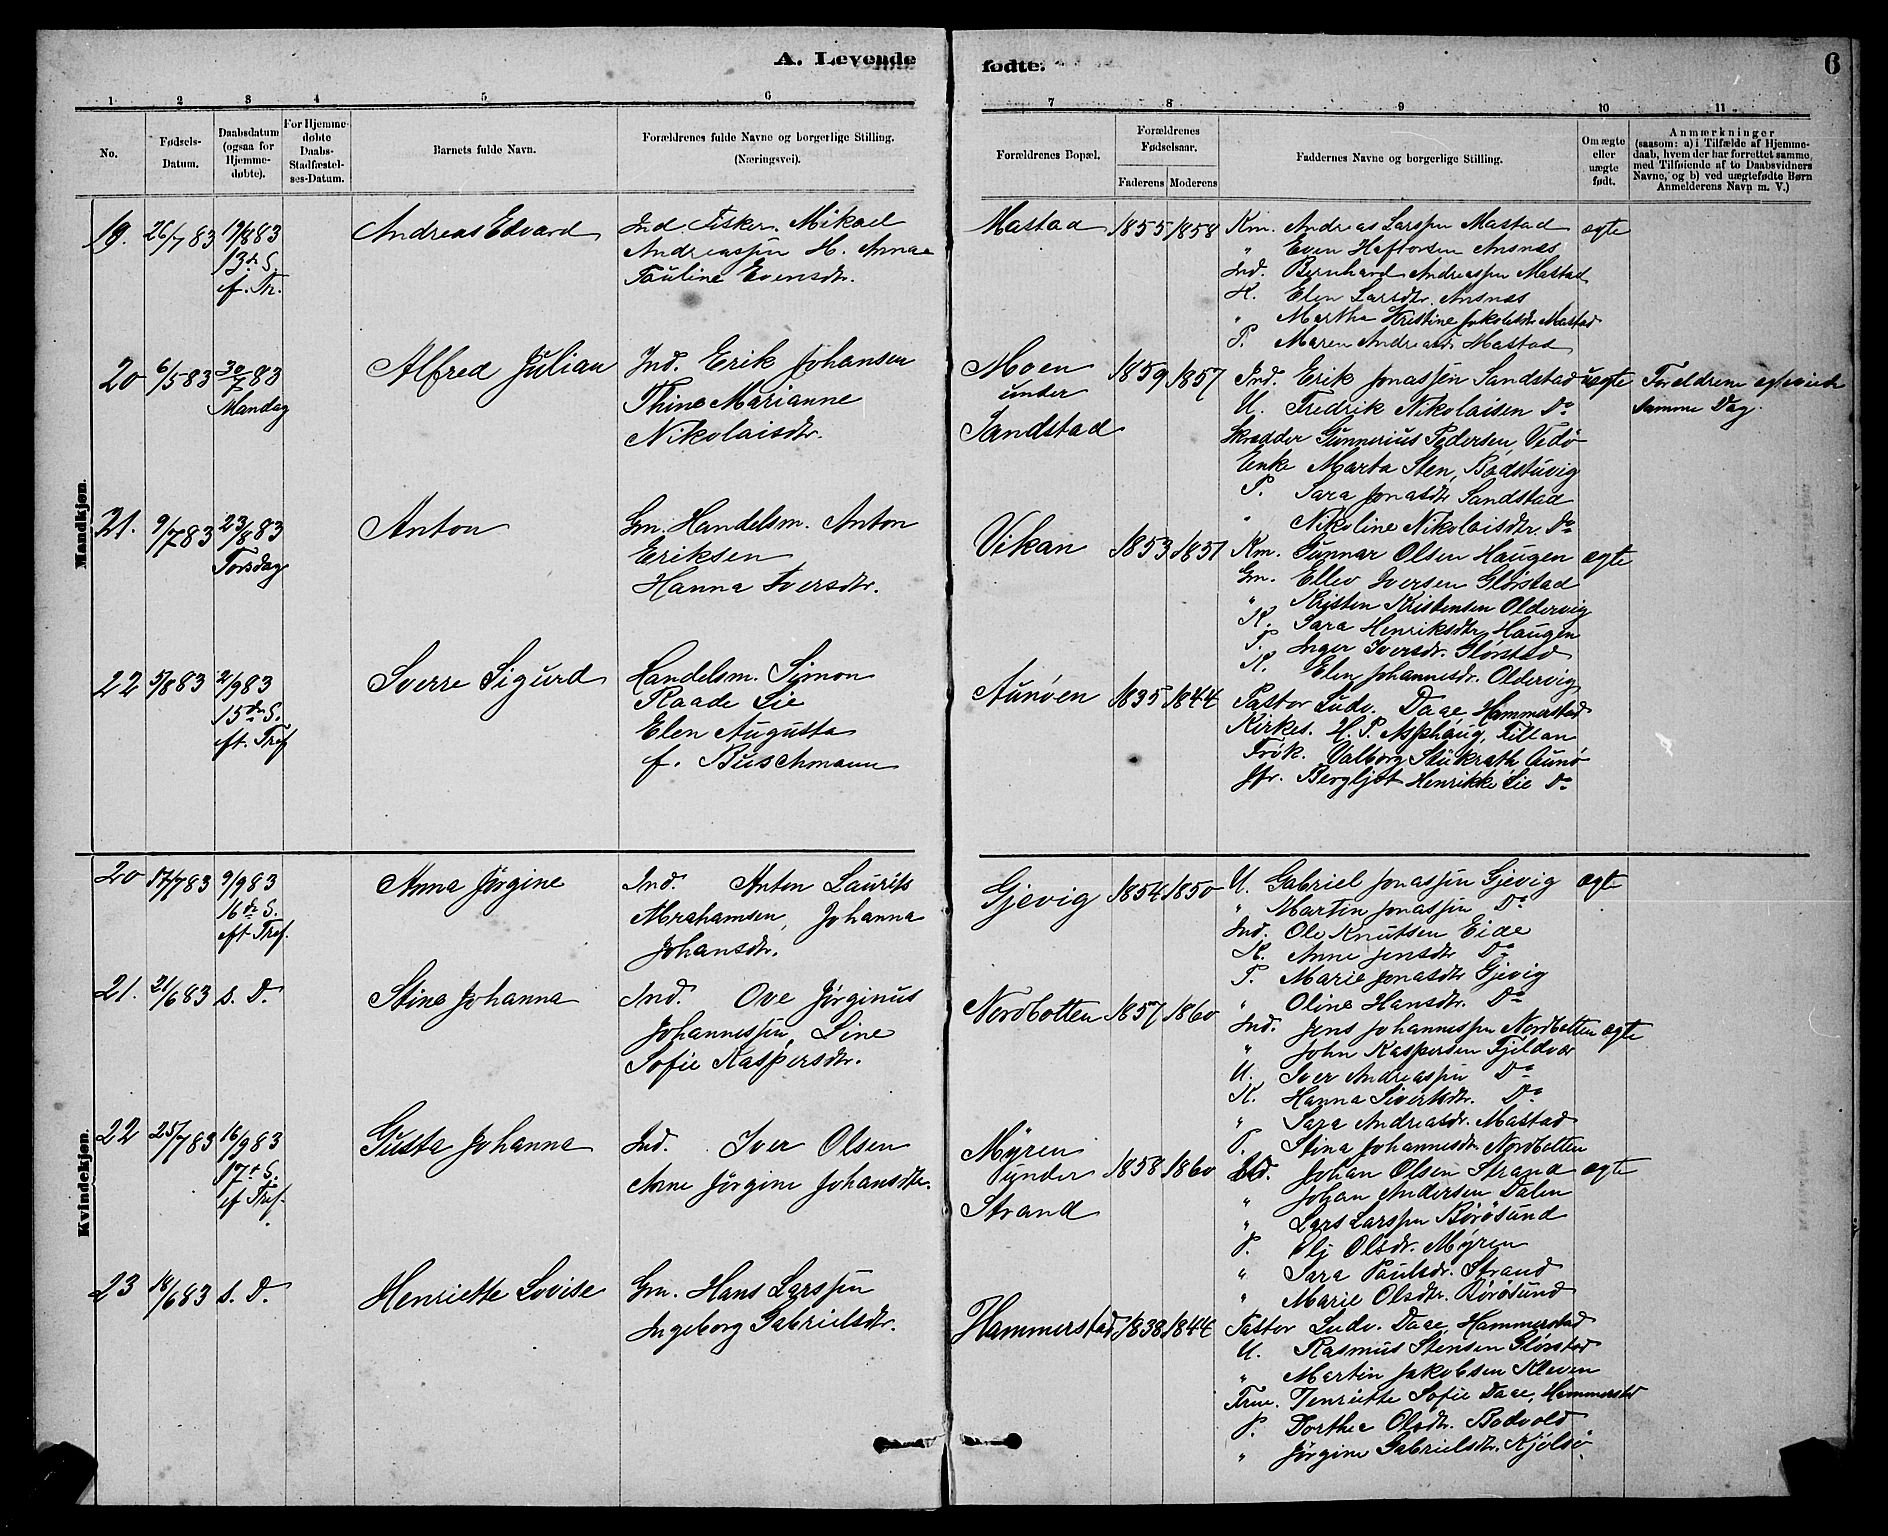 A. Levende fødte.
6
1 2 3 4 5 6 7 8 9 10 11
No.
Fødsels-
Datum.
Daabsdatum
(ogsaa for
Hjemme-
døbte).
For Hjemme-
døbte
Daabs-
Stadfæstel-
ses-Datum.
Barnets fulde Navn.
Forældrenes fulde Navne og borgerlige Stilling.
(Næringsvei).
Forældrenes Bopæl.
Forældrenes
Fødselsaar.
Faderens Moderens
Faddernes Navne og borgerlige Stilling.
Om ægte
eller
uægte
født.
Anmærkninger
(saasom: a) i Tilfælde af Hjemme-
daab, hvem der har forrettet samme,
med Tilføiende af to Daabsvidners
Navne, og b) ved uægtefødte Børn
Anmelderens Navn m. V.)
Mandkjøn.
19. 26/7 83 19/8 83
13de S.
ef. Tr.
Andreas Edvard
Ind. Fisker. Mikael
Andreassen H. Anna
Pauline Evensdtr.
Mastad 1855 1858
Km. Andreas Larssen Mastad
" Even Heftorsen Ansnæs
Ind. Bernhard Andreassen Mastad
K. Elen Larsdtr. Ansnæs
" Martha Kristine Jakobsdtr Mastad
P. Maren Andreasdr Mastad
ægte
20 6/5 83 30/7 83
Mandag
Alfred Julian
Ind. Erik Johansen
Thine Marianne
Nikolaisdtr.
Moen
under
Sandstad
1859 1857
Ind. Erik Jonassen Sandstad
U. Fredrik Nikolaisen Do
Skrædder Gunnerius Pedersen, Vedø
Enke Marta Sten, Badstuvig
P. Sara Jonasdtr Sandstad
" Nikoline Nikolaisdtr. Do
uægte
Forældrene egteviede
samme Dag.
21. 9/7 83 23/8 83
Torsdag
Anton
Gm. Handelsm. Anton
Eriksen
Hanna Iversdtr.
Vikan 1853 1851
Km. Gunnar Olsen Haugen
Gm. Ellev Iversen Glørstad
" Kristen Kristensen Oldervig
K. Sara Henriksdtr Haugen
P. Inger Iversdr. Glørstad
K. Elen Johannesdr. Oldervig
ægte
22 5/8 83 2/9 83
15de S.
eft. Tref
Sverre Sigurd
Handelsm. Simon
Raade Lie
Elen Augusta
f. Buschmann
Aunøen 1835 1844
Pastor Ludv. Daae Hammerstad
Kirkes. H. P. Asphaug, Tiltan
Frøk. Valborg Stükrath Aunø
Jfr. Bergljot Henrikke Lie Do
Kvindekjøn.
20 17/7 83 9/9 83
16de S.
eft Tref.
Anna Jørgine
Ind. Anton Laurits
Abrahamsen, Johanna
Johansdtr.
Gjevig 1854 1850
U. Gabriel Jonassen Gjevig
" Martin Jonassen Do
Ind. Ole Knutsen Eide
K. Anne Jensdtr Do
P. Marie Jonasdtr Gjevig
" Oline Hansdtr. Do
ægte
21. 21/6 83 s. D.
Stina Johanna
Ind. Ove Jørginus
Johannessen, Line
Sofie Kaspersdtr.
Nordbotten 1857 1860
Ind. Jens Johannessen Nordbotten
" John Kaspersen Fjeldvær
U. Iver Andreassen Do
K. Hanna Sivertsdtr. Do
" Sara Andreasdr. Mastad
P. Stina Johannesdtr Nordbotten
ægte
22 25/7 83 16/9 83
17de S.
ef Tref.
Gusta Johanna
Ind. Iver Olsen
Anne Jørgine Johansdtr.
Myren
under
Strand
1858 1860
Ind. Johan Olsen Strand
" Johan Andersen Dalen
" Lars Larssen Børøsund
P. Elj Olsdtr. Myren
" Sara Paulsdr. Strand
" Marie Olsdtr. Børøsund
ægte
23 16/6 83 s. D.
Henriette Lovise
Gm. Hans Larssen
Ingeborg Gabrielsdtr.
Hammerstad 1838 1844
Pastor Ludv. Daae, Hammerstad
U. Rasmus Stensen Glørstad
" Martin Jakobsen Kleven
Frue. Henriette Sofie Daae, Hammerstad
P. Dorthea Olsdtr. Bodvold
" Jørgine Gabrielsdtr. Kjølsø